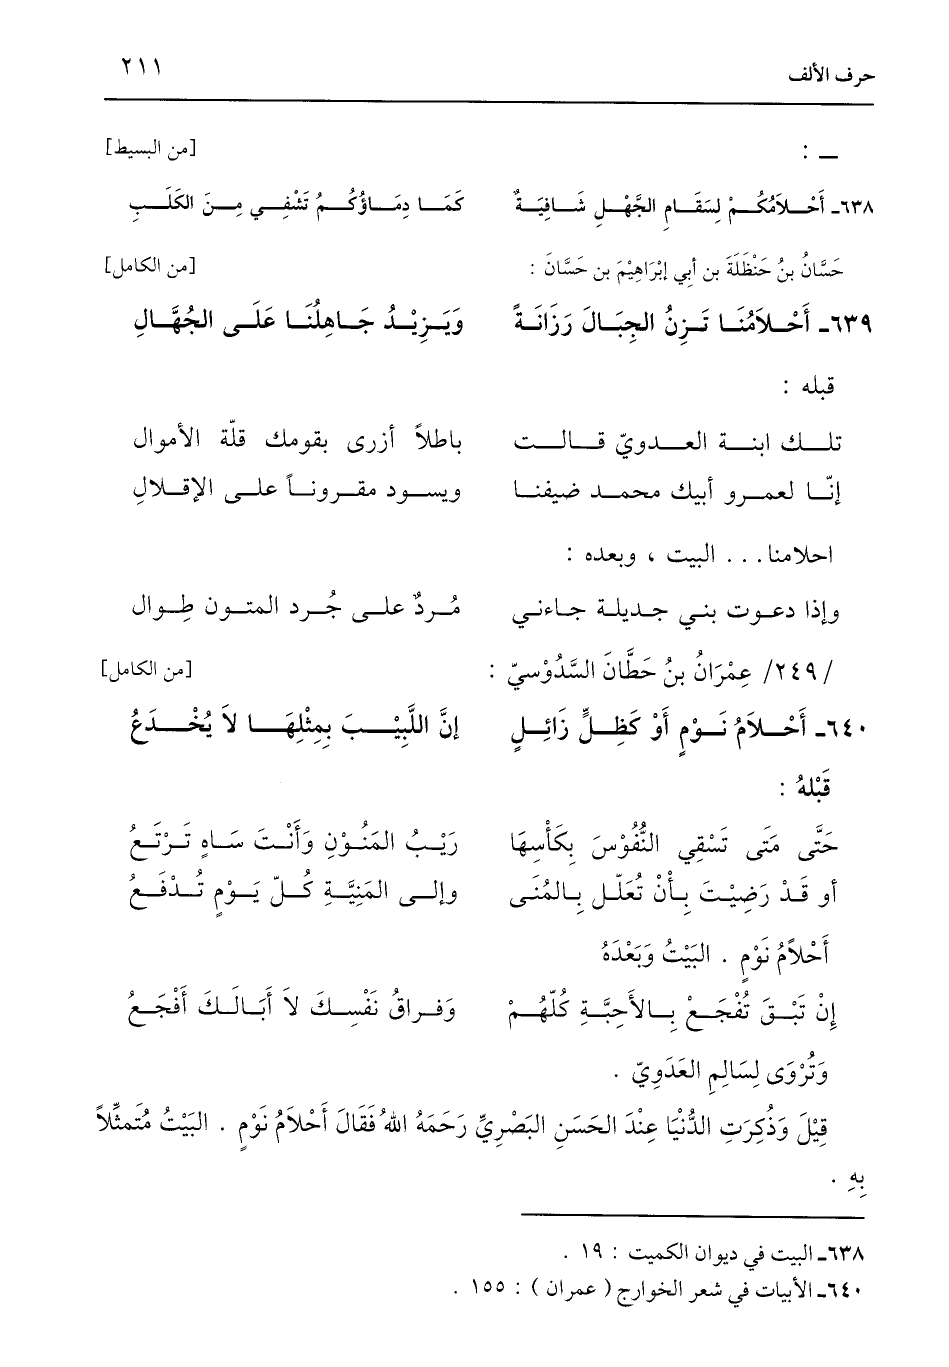 حرف الألف ٢١١
ــ : [من البسيط]
٦٣٨ـ أَحْـلَامُكُـمْ لِسَقَـامِ الجَهْـلِ شَـافِيَـةٌ كَمَـا دِمَـاؤُكُـمُ تَشْفِـي مِـنَ الكَلَـبِ
حَسَّانُ بنُ حَنْظَلَةَ بن أبي إبْرَاهِيْمَ بن حَسَّانَ : [من الكامل]
٦٣٩ـ أَحْـلَامُنَـا تَـزِنُ الجِبَـالَ رَزَانَـةً وَيَـزِيْـدُ جَـاهِلُنَـا عَلَـى الجُهَّـالِ
قبله :
تلـك ابنـة العـدويّ قـالـت باطلاً أزرى بقومك قلّة الأموال
إنّـا لعمـرو أبيك محمـد ضيفنـا ويسـود مقـرونـاً علـى الإقـلالِ
احلامنا... البيت ، وبعده :
وإذا دعـوت بنـي جـديلـة جـاءنـي مُـردٌ علـى جُـرد المتـون طِـوال
/٢٤٩/ عِمْرَانُ بنُ حَطَّانَ السَّدُوْسيّ : [من الكامل]
٦٤٠ـ أَحْـلَامُ نَـوْمٍ أَوْ كَظِـلٍّ زَائِـلٍ إنَّ اللَّبِيْـبَ بِمِثْلِهَـا لاَ يُخْـدَعُ
قَبْلهُ :
حَتَّى مَتَى تَسْقِي النُّفُوْسَ بِكَأْسِهَا رَيْـبُ المَنُـوْنِ وَأَنْـتَ سَـاهٍ تَـرْتَـعُ
أو قَـدْ رَضِيْـتَ بِـأَنْ تُعَلَّـل بِـالمُنَى وإلـى المَنِيَّـةِ كُـلّ يَـوْمٍ تُـدْفَـعُ
أَحْلاَمُ نَوْمٍ . البَيْتُ وَبَعْدَهُ
إنْ تَبْـقَ تُفْجَـعْ بِـالأَحِبَّـةِ كُلّهُـمْ وَفـراقُ نَفْسِـكَ لاَ أَبَـالَـكَ أَفْجَـعُ
وَتُرْوَى لِسَالِمِ العَدَوِيّ .
قِيْلَ وَذُكِرَتِ الدُّنْيَا عِنْدَ الحَسَنِ البَصْرِيِّ رَحَمَهُ اللهُ فَقَالَ أَحْلَامُ نَوْمٍ . البَيْتُ مُتَمثِّلاً
بِهِ .
٦٣٨ـ البيت في ديوان الكميت : ١٩ .
٦٤٠ـ الأبيات في شعر الخوارج ( عمران ) : ١٥٥ .